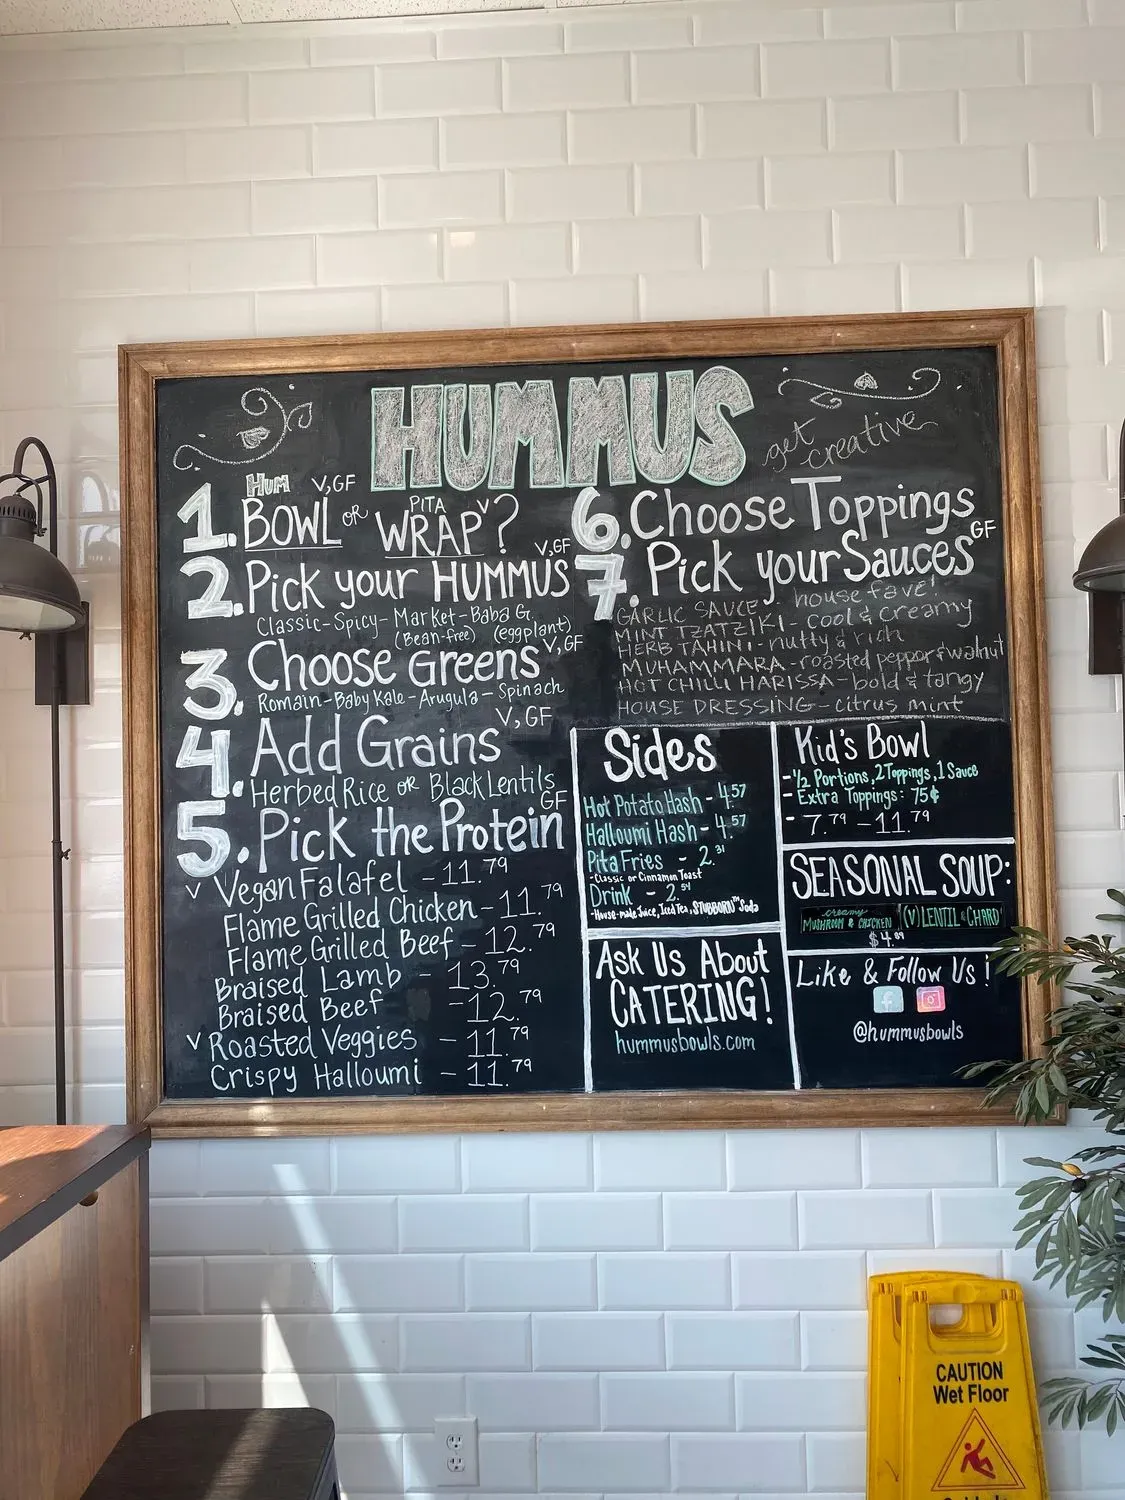 HUMMUS
get creative
HUM V,GF
1. BOWL OR PITA WRAP V?
2. Pick your HUMMUS V,GF
Classic-Spicy-Market-Baba G.
(Bean-free) (eggplant)
3. Choose Greens V,GF
Romain-Baby Kale-Arugula-Spinach
4. Add Grains V,GF
Herbed Rice OR Black Lentils
5. Pick the Protein GF
V Vegan Falafel - 11.79
Flame Grilled Chicken - 11.79
Flame Grilled Beef - 12.79
Braised Lamb - 13.79
Braised Beef - 12.79
V Roasted Veggies - 11.79
Crispy Halloumi - 11.79
6. Choose Toppings
7. Pick your Sauces GF
GARLIC SAUCE - house fave!
MINT TZATZIKI - cool & creamy
HERB TAHINI - nutty & rich
MUHAMMARA - roasted pepper & walnut
HOT CHILLI HARISSA - bold & tangy
HOUSE DRESSING - citrus mint
Sides
Hot Potato Hash - 4.57
Halloumi Hash - 4.57
Pita Fries - 2.31
-Classic or Cinnamon Toast
Drink - 2.54
-House-made Juice, Iced Tea, STUBBORN™ Soda
Ask Us About
CATERING!
hummusbowls.com
Kid's Bowl
- 1/2 Portions, 2 Toppings, 1 Sauce
- Extra Toppings: 75¢
- 7.79 - 11.79
SEASONAL SOUP:
creamy
MUSHROOM & CHICKEN (V) LENTIL & CHARD
$4.89
Like & Follow Us!
f
@hummusbowls
CAUTION
Wet Floor